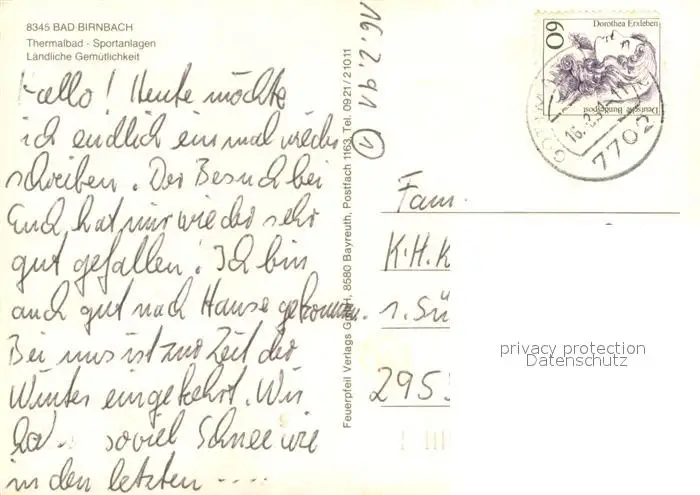 8345 BAD BIRNBACH
Thermalbad - Sportanlagen
Ländliche Gemütlichkeit
Hallo! Heute möchte
ich endlich einmal wieder
schreiben. Der Besuch bei
Euch hat mir wieder sehr
gut gefallen! Ich bin
auch gut nach Hause gekommen.
Bei uns ist zur Zeit der
Winter eingekehrt. Wir
soviel Schnee wie
in den letzten ....
16.2.91
1
Feuerpfeil Verlags GmbH, 8580 Bayreuth, Postfach 1163, Tel. 0921/21011
Dorothea Erxleben
60
Deutsche Bundespost
7702
Fam.
K.H.K
1. Sü
295
privacy protection
Datenschutz